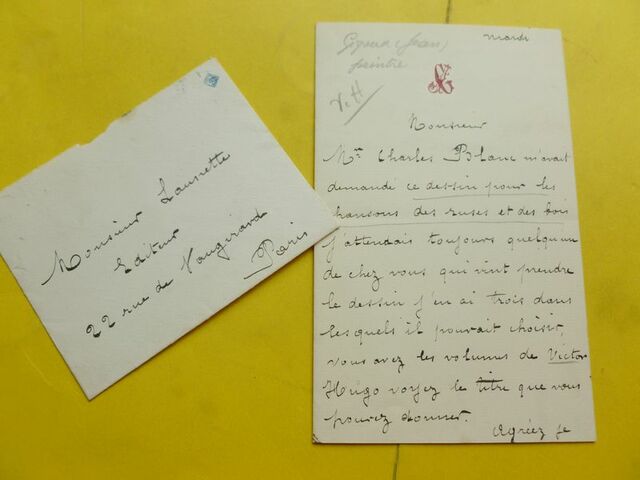 Monsieur Launette
Editeur
22 rue de Vaugirard
Paris
Gigoux (Jean)
peintre
V. H
mardi
Monsieur
Mr Charles Blanc m'avait
demandé ce dessin pour les
chansons des ruses et des bois
j'attendais toujours quelqu'un
de chez vous qui vint prendre
le dessin j'en ai trois dans
les quels il pourait choisir,
vous avez les volumes de Victor
Hugo voyez le titre que vous
pouvez donner.
Agréez je